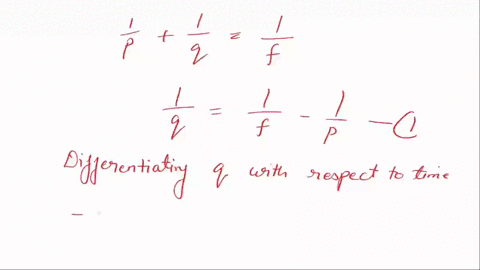 1/p + 1/q = 1/f
1/q = 1/f - 1/p — ①
Differentiating q with respect to time
-